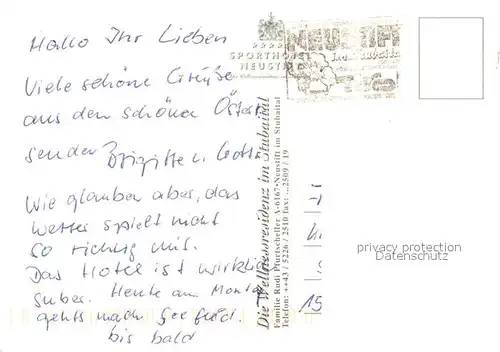 Hallo Ihr Lieben
Viele schöne Grüße
aus dem schönen
senden Brigitte u.
Wir glauben aber, das
Wetter spielt nicht
so richtig mit.
Das Hotel ist wirklich
super. Heute am Montag
gehts nach Seefeld.
bis bald
SPORTHOTEL
NEUSTIFT
NEUSTIFT
Die Wellnessresidenz im Stubaital
Familie Rudi Pfurtscheller A-6167-Neustift im Stubaital
Telefon: ++43 / 5226 / 2510 fax: ...2509 / 19
privacy protection
Datenschutz